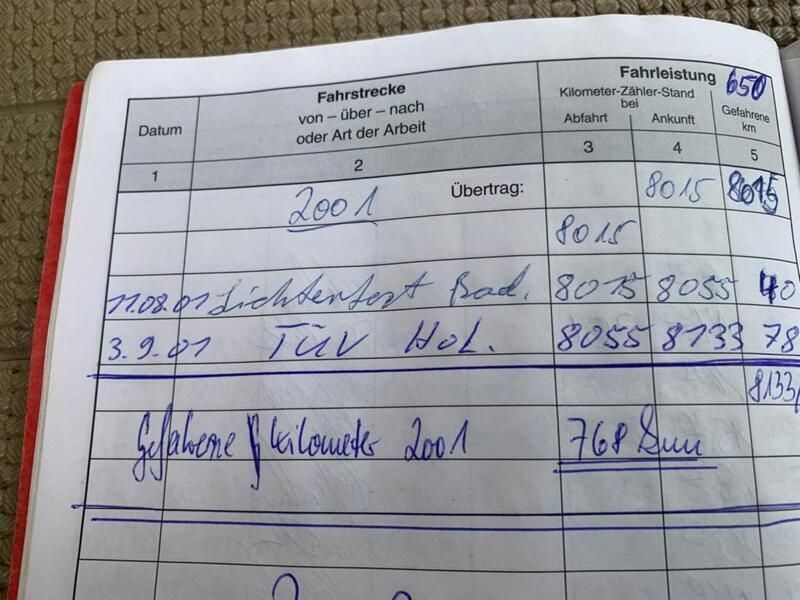 Fahrleistung 650
Fahrstrecke
von – über – nach
oder Art der Arbeit
Kilometer-Zähler-Stand
bei
Datum
Abfahrt Ankunft Gefahrene
km
1 2 3 4 5
2001 Übertrag: 8015 8015
8015
11.08.01 Lichterfest Bad. 8015 8055 40
3.9.01 TÜV Hol. 8055 8133 78
8133
Gefahrene kilometer 2001 768